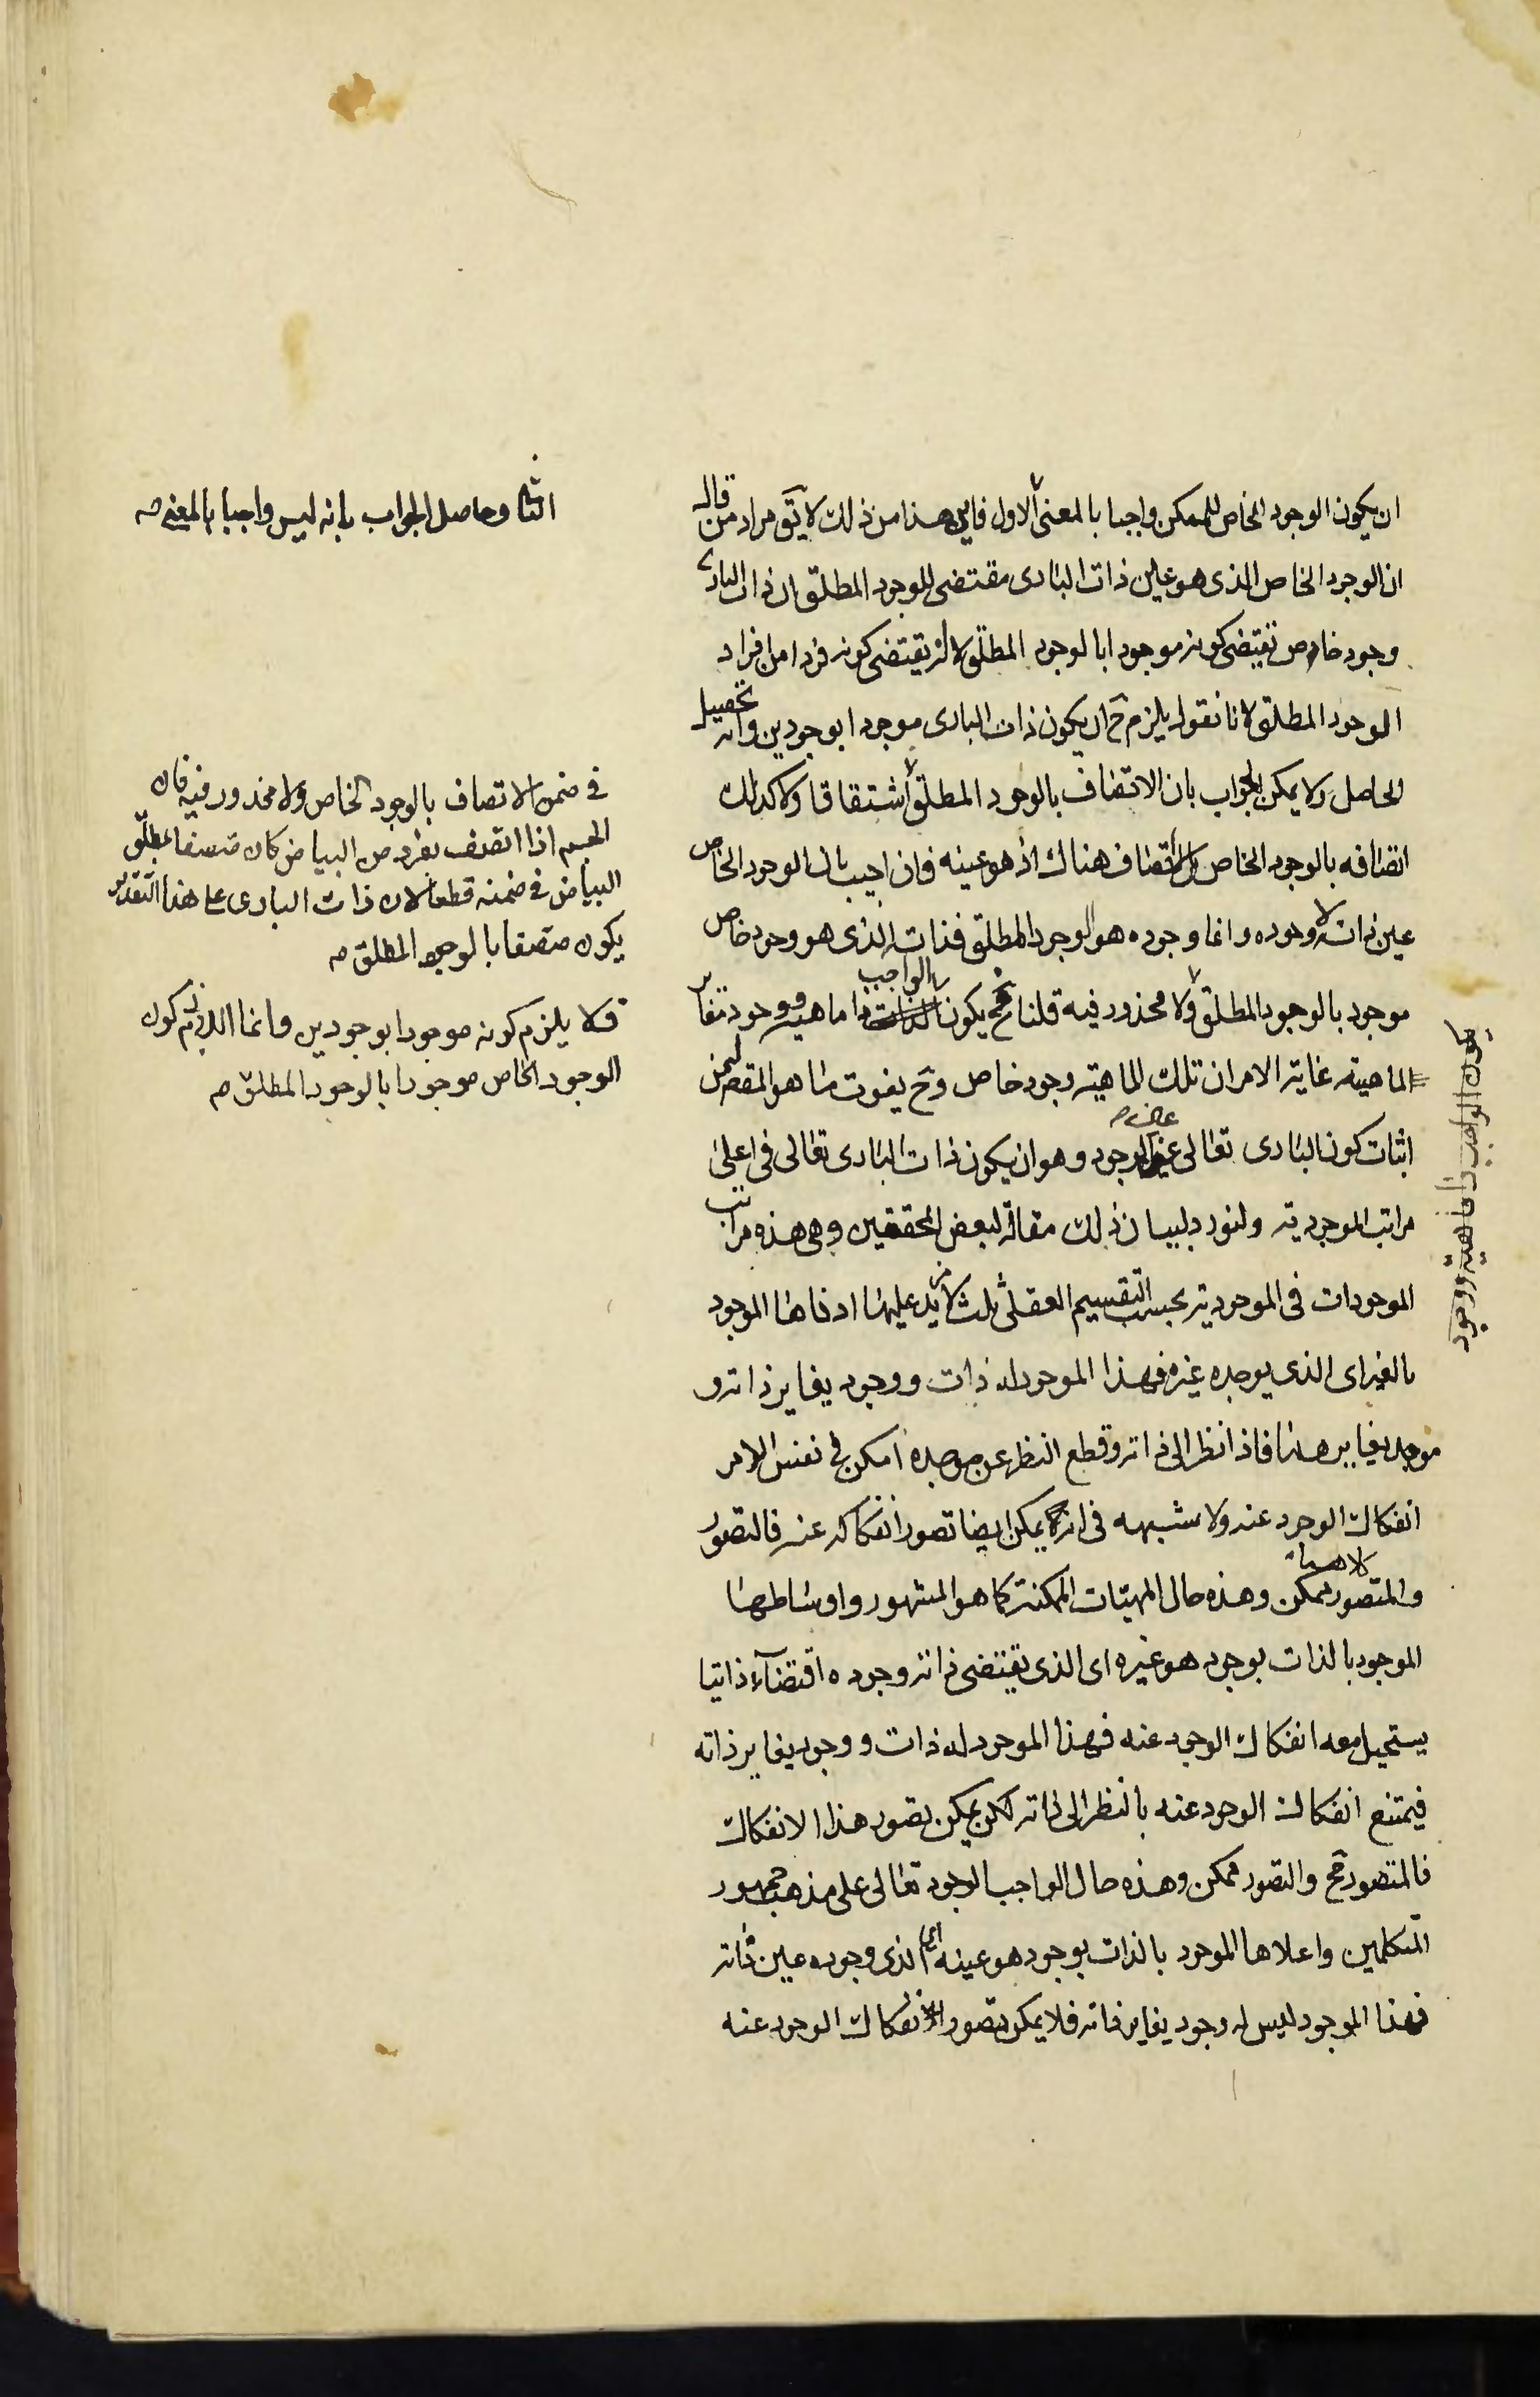 ان يكون الوجود الخاص للممكن واجبا بالمعنى الاول فاين هذا من ذلك لا يق مراد من قال
ان الوجود الخاص الذى هو عين ذات البارى مقتضى للوجود المطلق ان ذات البارى
وجود خاص تقتضى كونه موجودا بالوجود المطلق لا انه يقتضى كونه فردا من افراد
الوجود المطلق لانا نقول يلزم ح ان يكون ذات البارى موجودا بوجودين وانه تحصيل
الحاصل ولا يمكن الجواب بان الاتصاف بالوجود المطلق اشتقاقا ولا كذلك
اتصافه بالوجود الخاص بل لا اتصاف هناك اذ هو عينه فان اجيب بان الوجود الخاص
عين ذاته لا وجوده وانما وجوده هو الوجود المطلق فذاته الذى هو وجود خاص
موجود بالوجود المطلق ولا محذور فيه قلنا فح يكون الواجب ذا ماهية ووجود تغاير
الماهية غاية الامر ان تلك الماهية وجود خاص وح يفوت ما هو المقصد من
اثبات كون البارى تعالى عين الوجود وهو ان يكون ذات البارى تعالى فى اعلى
مراتب الموجودية ولنورد لبيان ذلك مقالة لبعض المحققين وهى هذه مراتب
الموجودات فى الموجودية بحسب التقسيم العقلى ثلث لا مزيد عليها ادناها الموجود
بالغير اى الذى يوجده غيره فهذا الموجود له ذات ووجود يغاير ذاته و
موجد يغايرهما فاذا نظر الى ذاته وقطع النظر عن موجده امكن فى نفس الامر
انفكاك الوجود عنه ولا شبهه فى انه يمكن ايضا تصور انفكاكه عنه فالتصور
والمتصور كلاهما ممكن وهذه حال المهيّات الممكنة كما هو المشهور واوساطها
الموجود بالذات بوجود هو غيره اى الذى يقتضى ذاته وجوده اقتضآء ذاتيا
يستحيل معه انفكاك الوجود عنه فهذا الموجود له ذات ووجود يغاير ذاته
فيمتنع انفكاك الوجود عنه بالنظر الى ذاته لكن يمكن تصور هذا الانفكاك
فالمتصور مح والتصور ممكن وهذه حال الواجب الوجود تعالى على مذهب جمهور
المتكلمين واعلاها الموجود بالذات بوجود هو عينه اى الذى وجوده عين ذاته
فهذا الموجود ليس له وجود يغاير ذاته فلا يمكن تصور انفكاك الوجود عنه
وحاصل الجواب بانه ليس واجبا بالمعنى
فى ضمن الاتصاف بالوجود الخاص ولا محذور فيه فان
الجسم اذا اتصف بفرد من البياض كان متصفا بمطلق
البياض فى ضمنه قطعا لان ذات البارى على هذا التقدير
يكون متصفا بالوجود المطلق
فلا يلزم كونه موجودا بوجودين وانما اللازم كون
الوجود الخاص موجودا بالوجود المطلق
يكون الواجب ذا ماهية ووجود